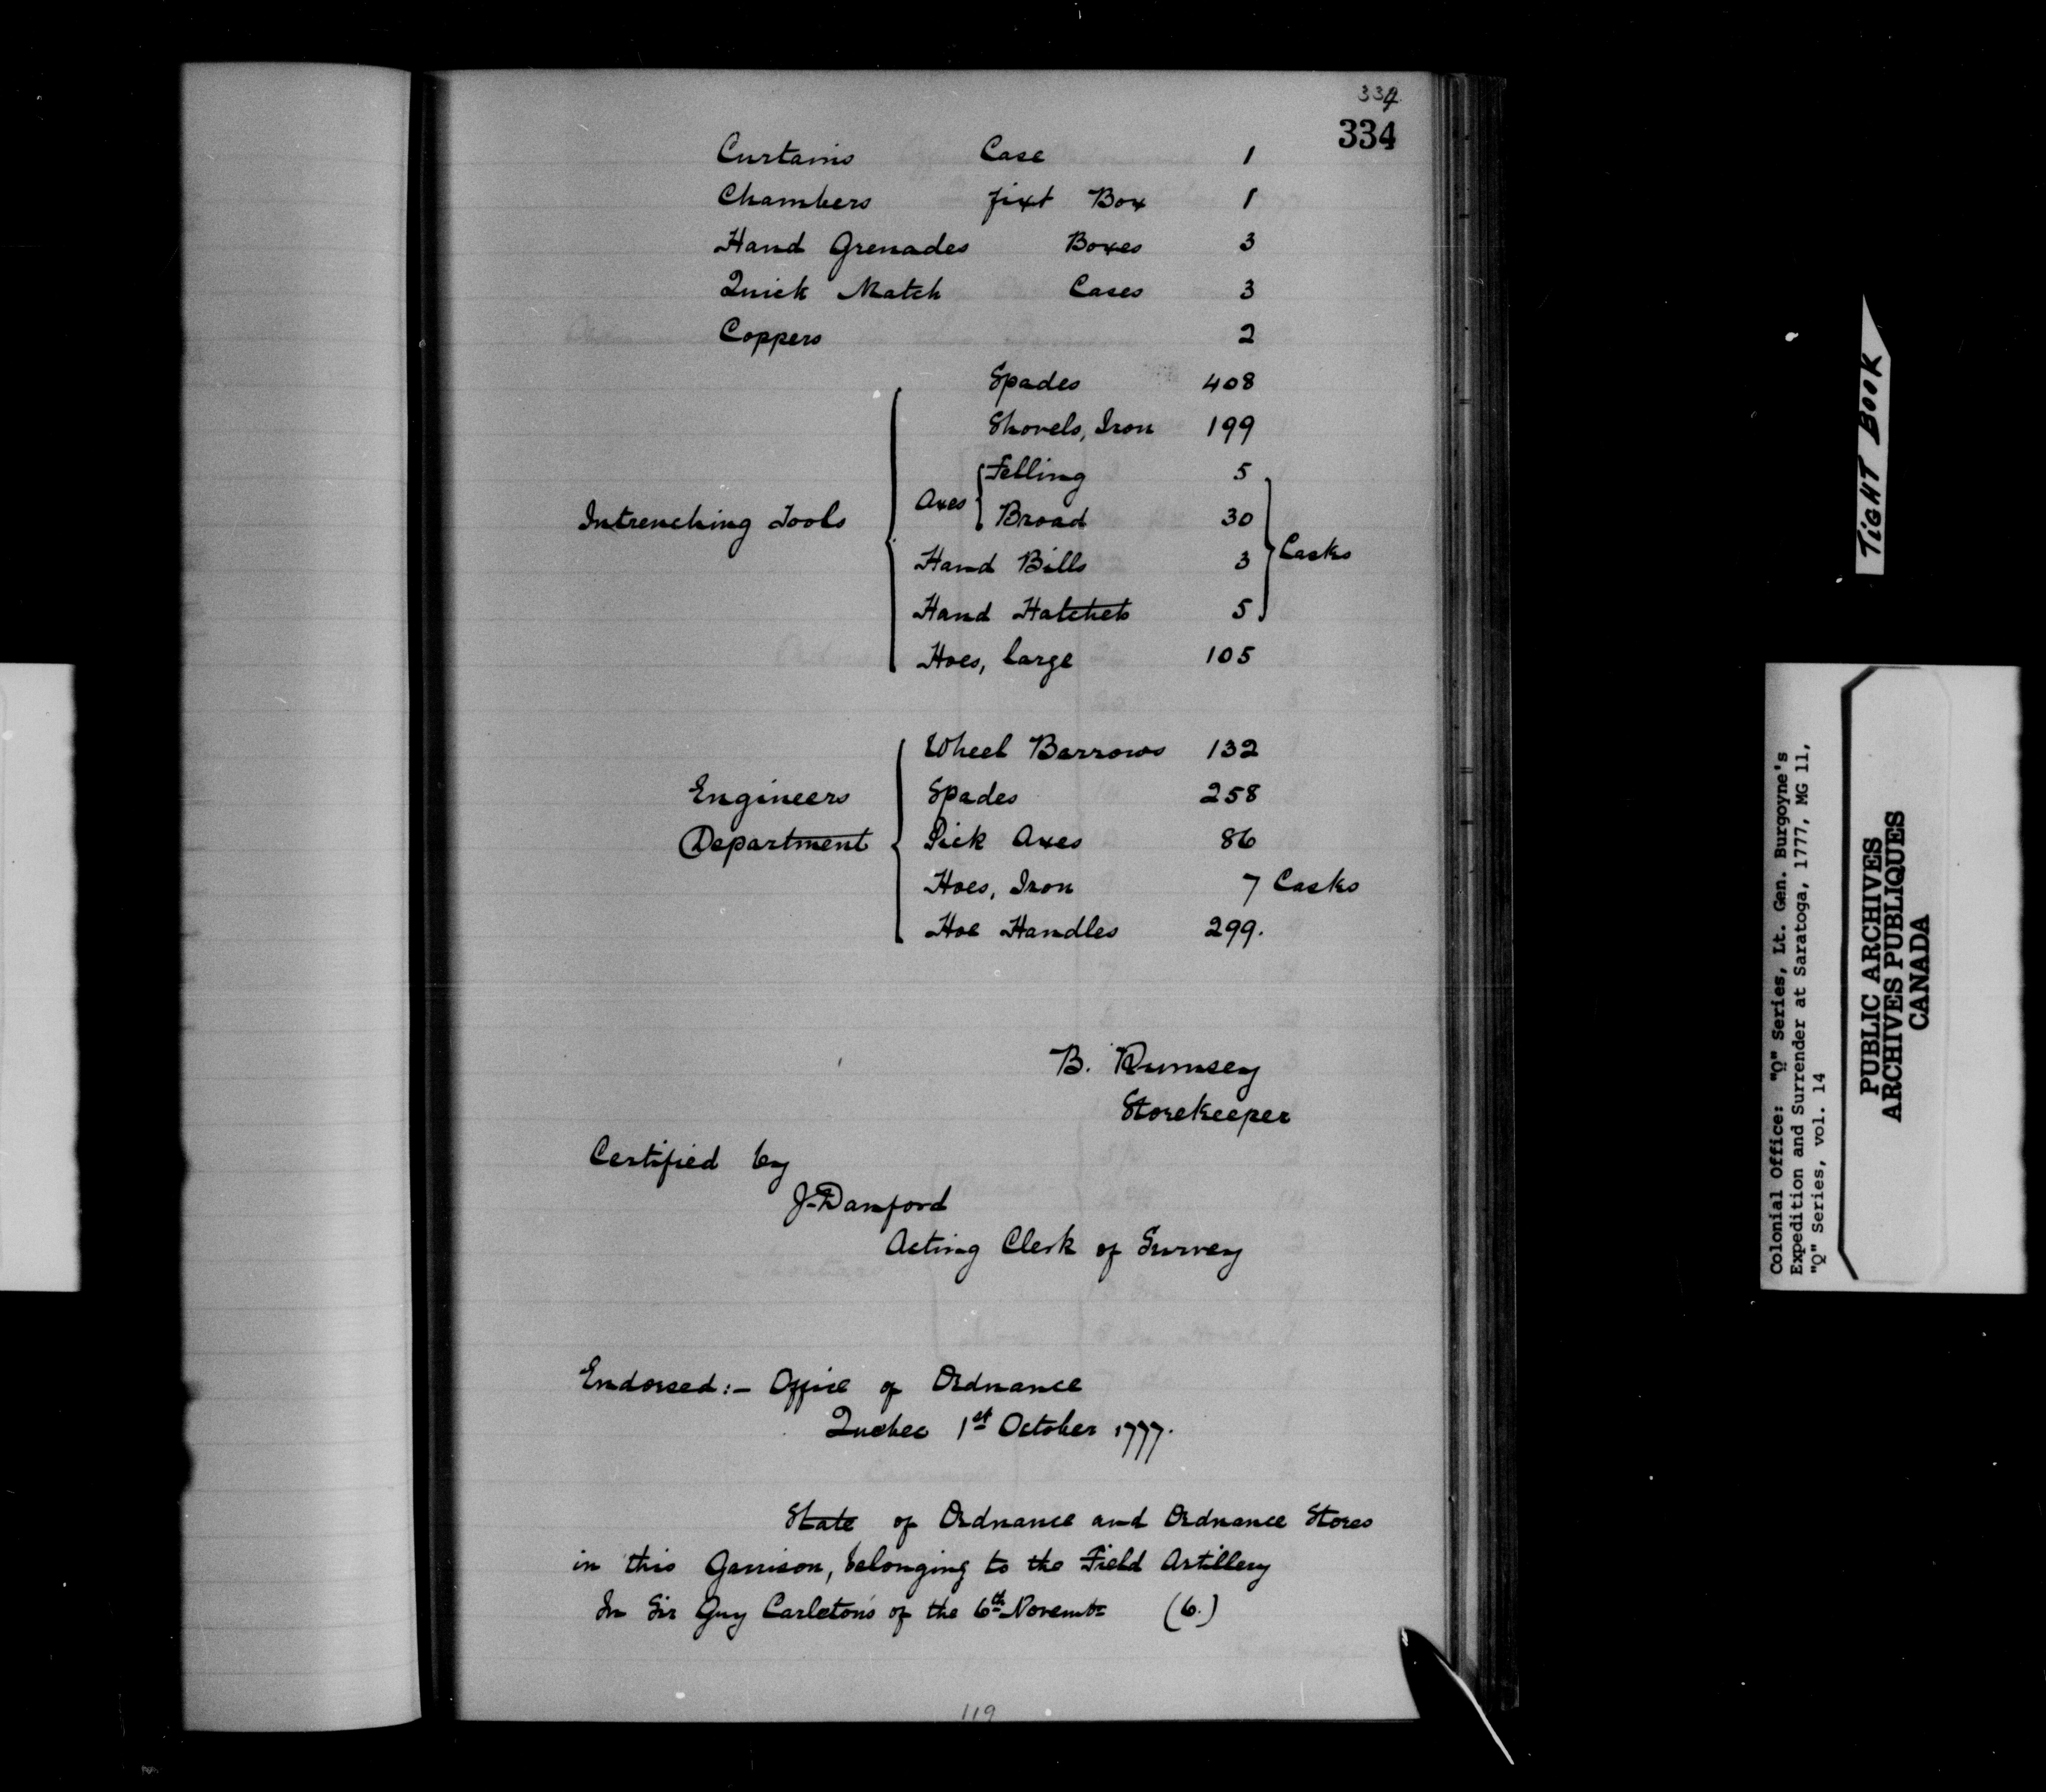 334
334
Curtains Case 1
Chambers fixt Box 1
Hand Grenades Boxes 3
Quick Match Cases 3
Coppers 2
Spades 408
Shovels, Iron 199
Felling 5
Axes
Intrenching Tools Broad 30
Casks
Hand Bills 3
Hand Hatchets 5
Hoes, large 105
Wheel Barrows 132
Engineers Spades 258
Department Pick Axes 86
Hoes, Iron 7 Casks
Hoe Handles 299.
B. Rumsey
Storekeeper
Certified by
J. Danford
Acting Clerk of Survey
Endorsed:- Office of Ordnance
Quebec 1st October 1777.
State of Ordnance and Ordnance Stores
in this Garrison, belonging to the Field Artillery
In Sir Guy Carleton's of the 6th Novembr (6.)
119
TIGHT BOOK
Colonial Office: "Q" Series, Lt. Gen. Burgoyne's
Expedition and Surrender at Saratoga, 1777, MG 11,
"Q" Series, vol. 14
PUBLIC ARCHIVES
ARCHIVES PUBLIQUES
CANADA